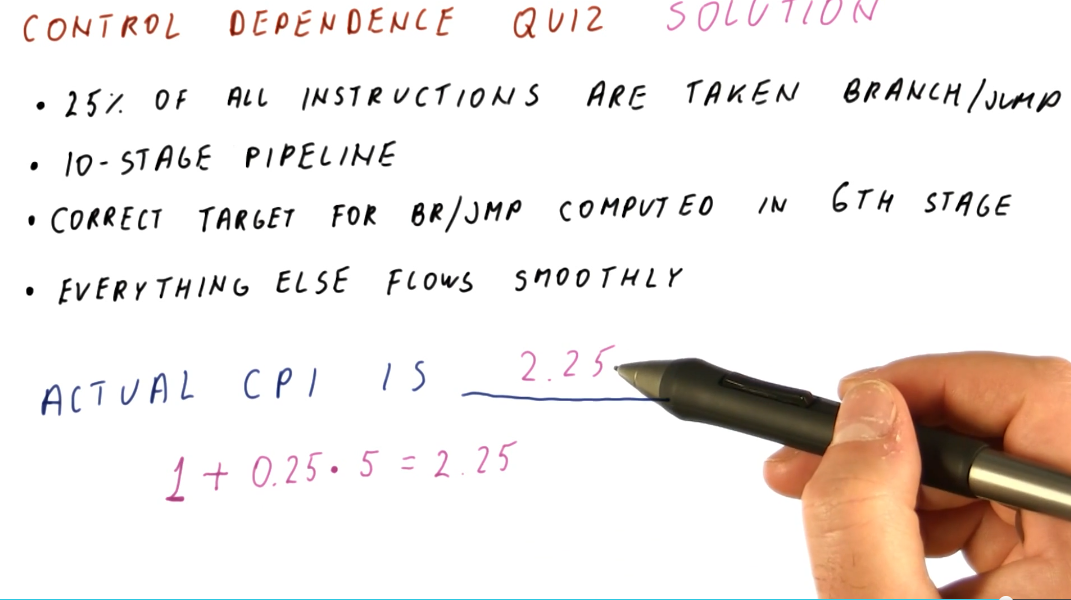 CONTROL DEPENDENCE QUIZ SOLUTION
• 25% OF ALL INSTRUCTIONS ARE TAKEN BRANCH/JUMP
• 10-STAGE PIPELINE
• CORRECT TARGET FOR BR/JMP COMPUTED IN 6TH STAGE
• EVERYTHING ELSE FLOWS SMOOTHLY
ACTUAL CPI IS 2.25
1 + 0.25 • 5 = 2.25